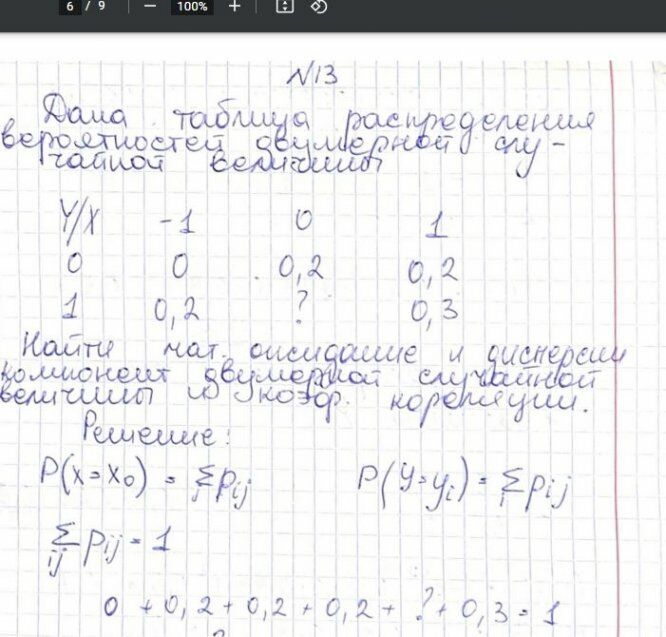 6 / 9 — 100% +
N13
Дана таблица распределения
вероятностей двумерной слу-
чайной величины
Y/X -1 0 1
0 0 0,2 0,2
1 0,2 ? 0,3
Найти мат. ожидание и дисперсии
компонент двумерной случайной
величины и коэф. корреляции.
Решение:
P(x=x₀) = Σ pij P(y=yi) = Σ pij
Σ pij = 1
ij
0 + 0,2 + 0,2 + 0,2 + ? + 0,3 = 1